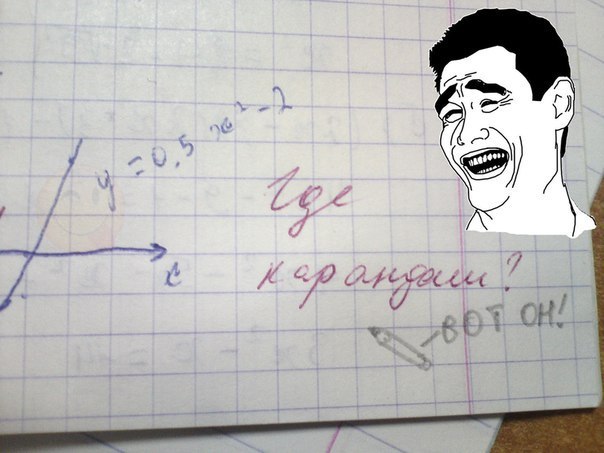 y = 0,5 x² - 2
x
Где
карандаш?
ВОТ ОН!